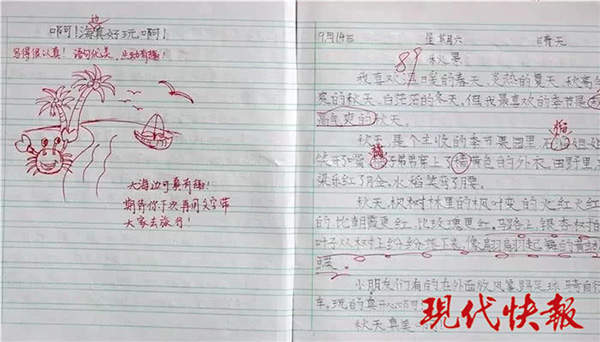 边
啊！海真好玩啊！
写得很认真！语句优美、生动有趣！
大海边可真有趣！
期待你下次再用文字带
大家去旅行！
9月14日 星期六 晴天
89 秋景
我喜欢温暖的春天、炎热的夏天、秋高
爽的秋天、白茫茫的冬天，但我最喜欢的季节是
高气爽的秋天。
秋天，是个丰收的季节果园里石
榴
笑开了嘴 子弟弟穿上了 黄色的外衣，田野里
粱乐红了脸，水稻笑弯了腰。
秋天，秋树林里的枫叶变的火红火红
的，比朝霞更红，比玫瑰更红。马路上银杏树的
叶子从树上纷纷落下来，像翩翩起舞的黄
蝶。
小朋友们有的在外面放风筝踢足球骑自行
车，玩的真开心
秋天真美
現代快報